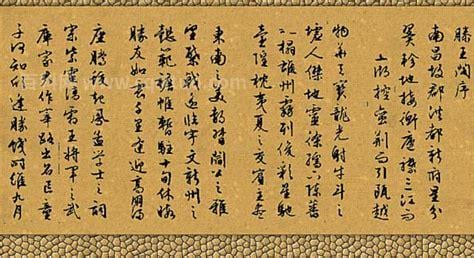 滕王阁序
南昌故郡洪都新府星分
翼軫地接衡廬襟三江而
湖控蠻荆而引甌越
物華天寶龍光射牛斗之
墟人傑地靈徐孺下陳蕃
之榻雄州霧列俊彩星馳
臺隍枕夷夏之交賓主盡
東南之美都督閻公之雅
望棨戟遥臨宇文新州之
懿範襜帷暫駐十旬休暇
勝友如雲千里逢迎高朋滿
座騰蛟起鳳孟學士之詞
宗紫電清霜王將軍之武
庫家君作宰路出名區童
子何知躬逢勝餞時維九月